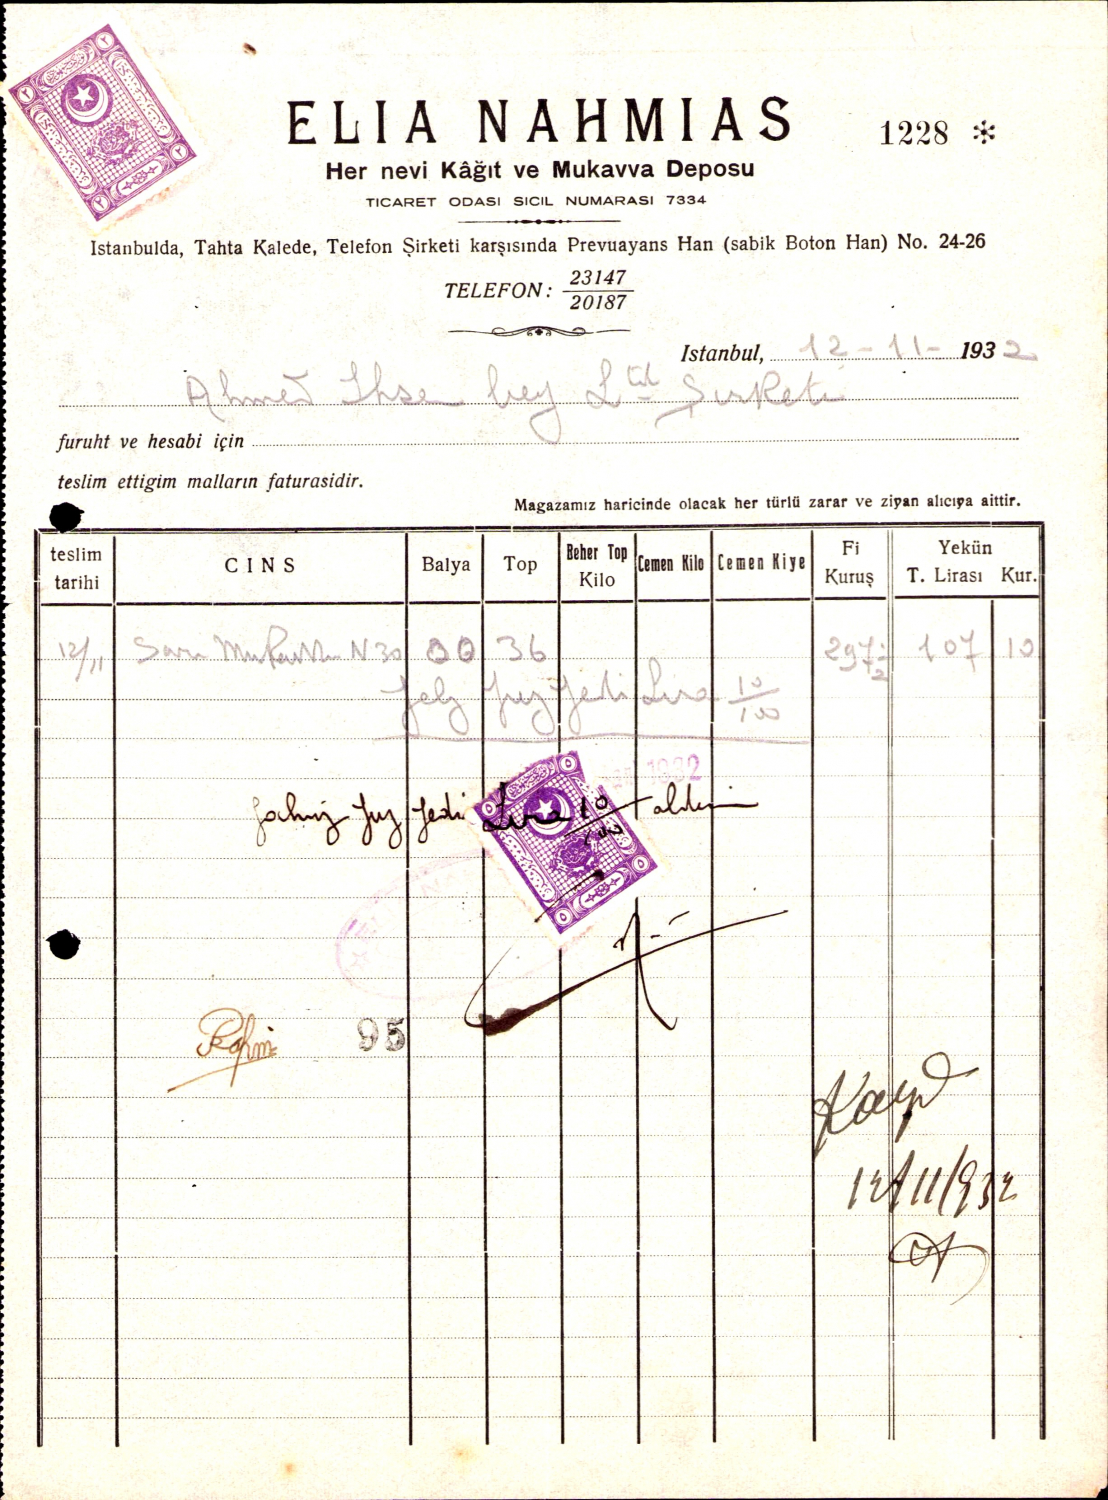 ELIA NAHMIAS
1228 *
Her nevi Kâğıt ve Mukavva Deposu
TICARET ODASI SICIL NUMARASI 7334
Istanbulda, Tahta Kalede, Telefon Şirketi karşısında Prevuayans Han (sabik Boton Han) No. 24-26
TELEFON: 23147
20187
Istanbul, 12-11-1932
Ahmed Ihsan bey Ltd Şirketi
furuht ve hesabi için
teslim ettigim malların faturasidir.
Magazamız haricinde olacak her türlü zarar ve ziyan alıcıya aittir.
teslim tarihi CINS Balya Top Beher Top Kilo Cemen Kilo Cemen Kiye Fi Kuruş Yekün T. Lirası Kur.
12/11 Sarı Mukavva N 30 00 36 297 1/2 107 10
Yalnız Yuz Yedi Lira 10/100
1932
Yalnız Yuz Yedi Lira 10/100 aldım
95
Kayd
12/11/932